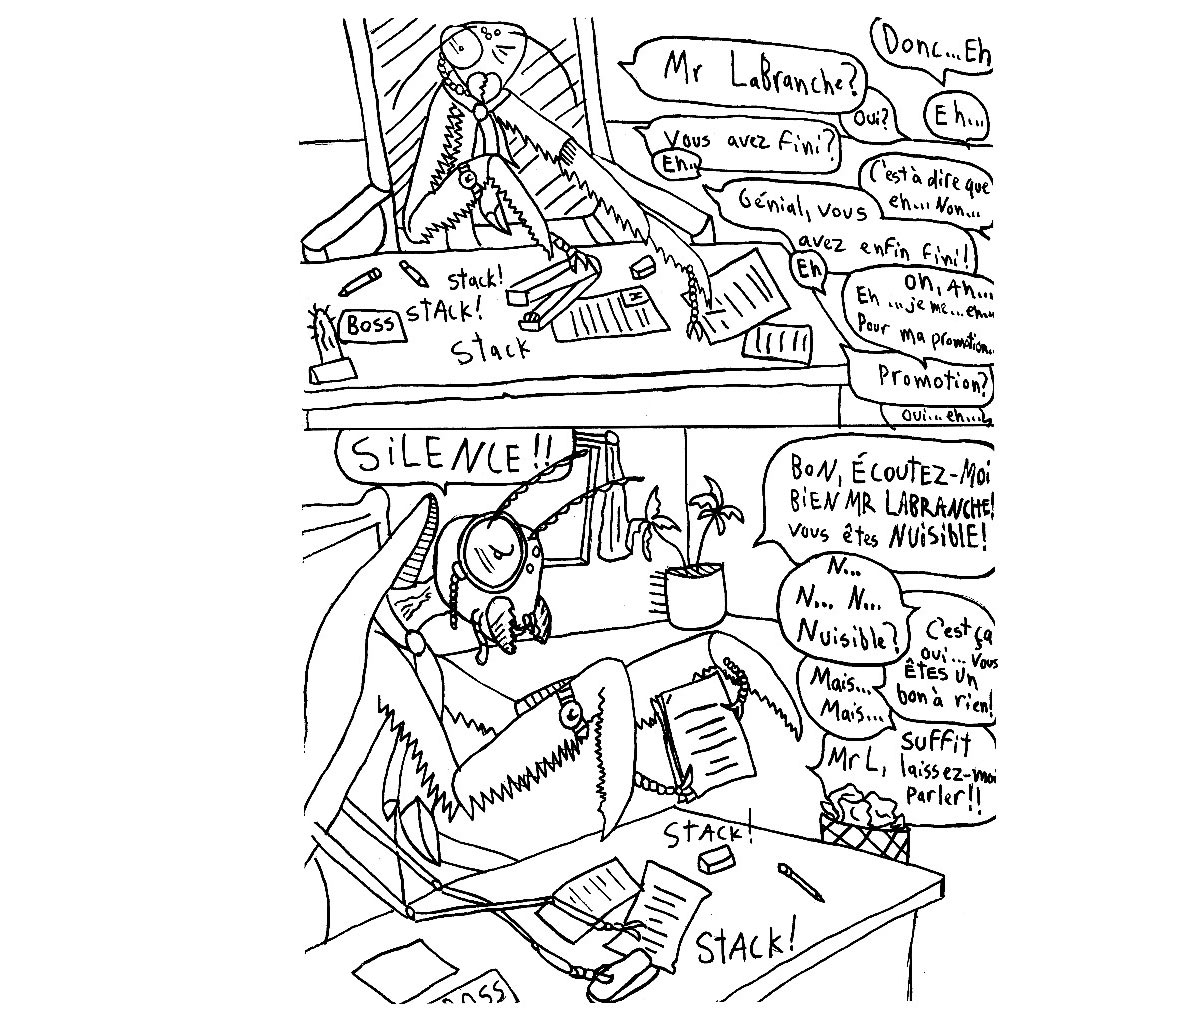 Donc...Eh
Mr LaBranche?
Oui?
Eh...
Vous avez fini?
Eh..
C'est à dire que
eh... Non...
Génial, vous
avez enfin fini!
Eh
Oh, Ah...
Eh ...je me...eh...
Pour ma promotion..
Promotion?
Oui... eh...
Stack!
StACk!
Stack
Boss
SiLENCE!!
BON, ÉCOUTEZ-MOi
BiEN MR LABRANCHE!
vous êtes NUiSiBLE!
N...
N... N...
Nuisible?
C'est ça
oui... Vous
ÊTES UN
bon à rien!
Mais...
Mais...
SUFFiT
Mr L, laissez-moi
parler!!
STACK!
STACK!
BOSS